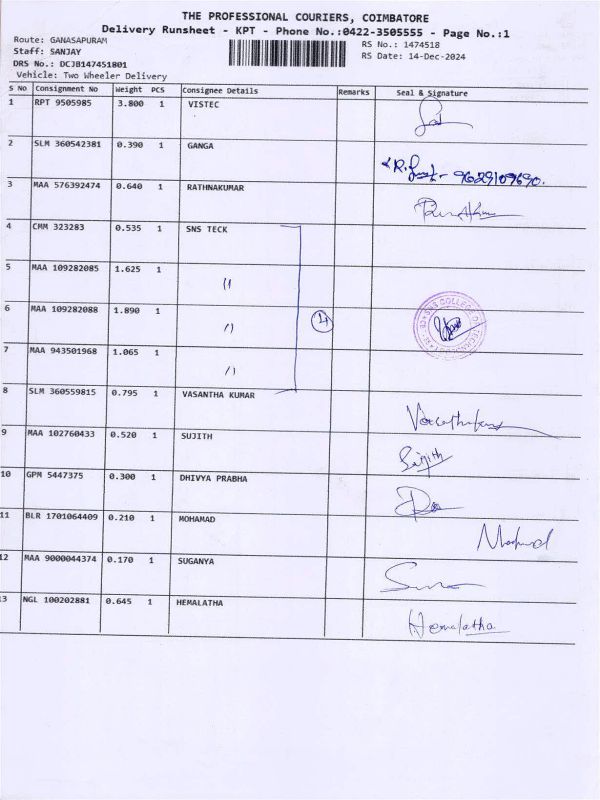 THE PROFESSIONAL COURIERS, COIMBATORE
Delivery Runsheet - KPT - Phone No.:0422-3505555 - Page No.:1
Route: GANASAPURAM
RS No.: 1474518
Staff: SANJAY
RS Date: 14-Dec-2024
DRS No.: DCJB147451801
Vehicle: Two Wheeler Delivery
S No Consignment No Weight PCS Consignee Details Remarks Seal & Signature
1 RPT 9505985 3.800 1 VISTEC
2 SLM 360542381 0.390 1 GANGA 9629109690.
3 MAA 576392474 0.640 1 RATHNAKUMAR
4 CMM 323283 0.535 1 SNS TECK
5 MAA 109282085 1.625 1 〃
6 MAA 109282088 1.890 1 〃 4 SNS COLLEGE OF
7 MAA 943501968 1.065 1 〃
8 SLM 360559815 0.795 1 VASANTHA KUMAR
9 MAA 102760433 0.520 1 SUJITH Sujith
10 GPM 5447375 0.300 1 DHIVYA PRABHA
11 BLR 1701064409 0.210 1 MOHAMAD
12 MAA 9000044374 0.170 1 SUGANYA
13 NGL 100202881 0.645 1 HEMALATHA Hemalatha